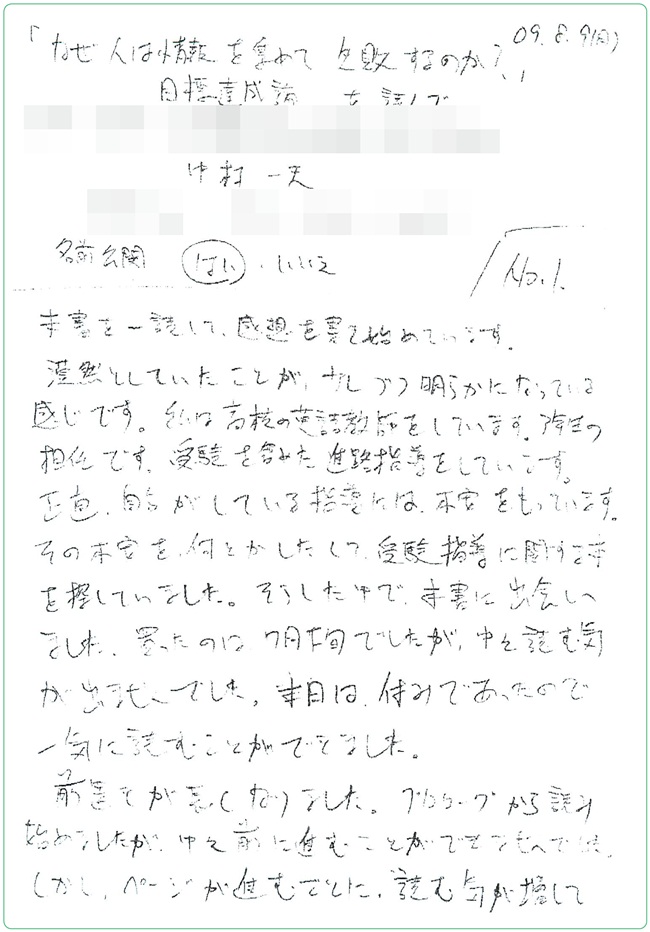 09.8.9(日)
「なぜ人は情報を集めて失敗するのか?」
目標達成論 を読んで
中村 一夫
名前公開 はい・いいえ
No.1.
本書を一読して、感想を書き始めています。
漠然としていたことが、少しづつ明らかになっている
感じです。私は高校の英語教師をしています。3年生の
担任です。受験を含めた進路指導をしています。
正直、自らがしている指導には、不安をもっています。
その不安を、何とかしたくて、受験指導に関する本
を探していました。そうした中で、本書に出会い
ました。買ったのは7月下旬でしたが、中々読む気
が出ませんでした。本日は、休みであったので
一気に読むことができました。
前置きが長くなりました。プロローグから読み
始めましたが、中々前に進むことができませんでした。
しかし、ページが進むごとに、読む気が増して